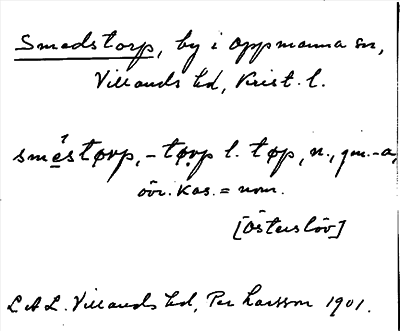 Smedstorp, by i Oppmanna sn,
Villands hd, Krist. l.
smèstørp, -tørp l. tøp, n., gm. -a,
övr. kas. = nom.
[Österslöv]
LAL. Villands hd, Per Larsson 1901.